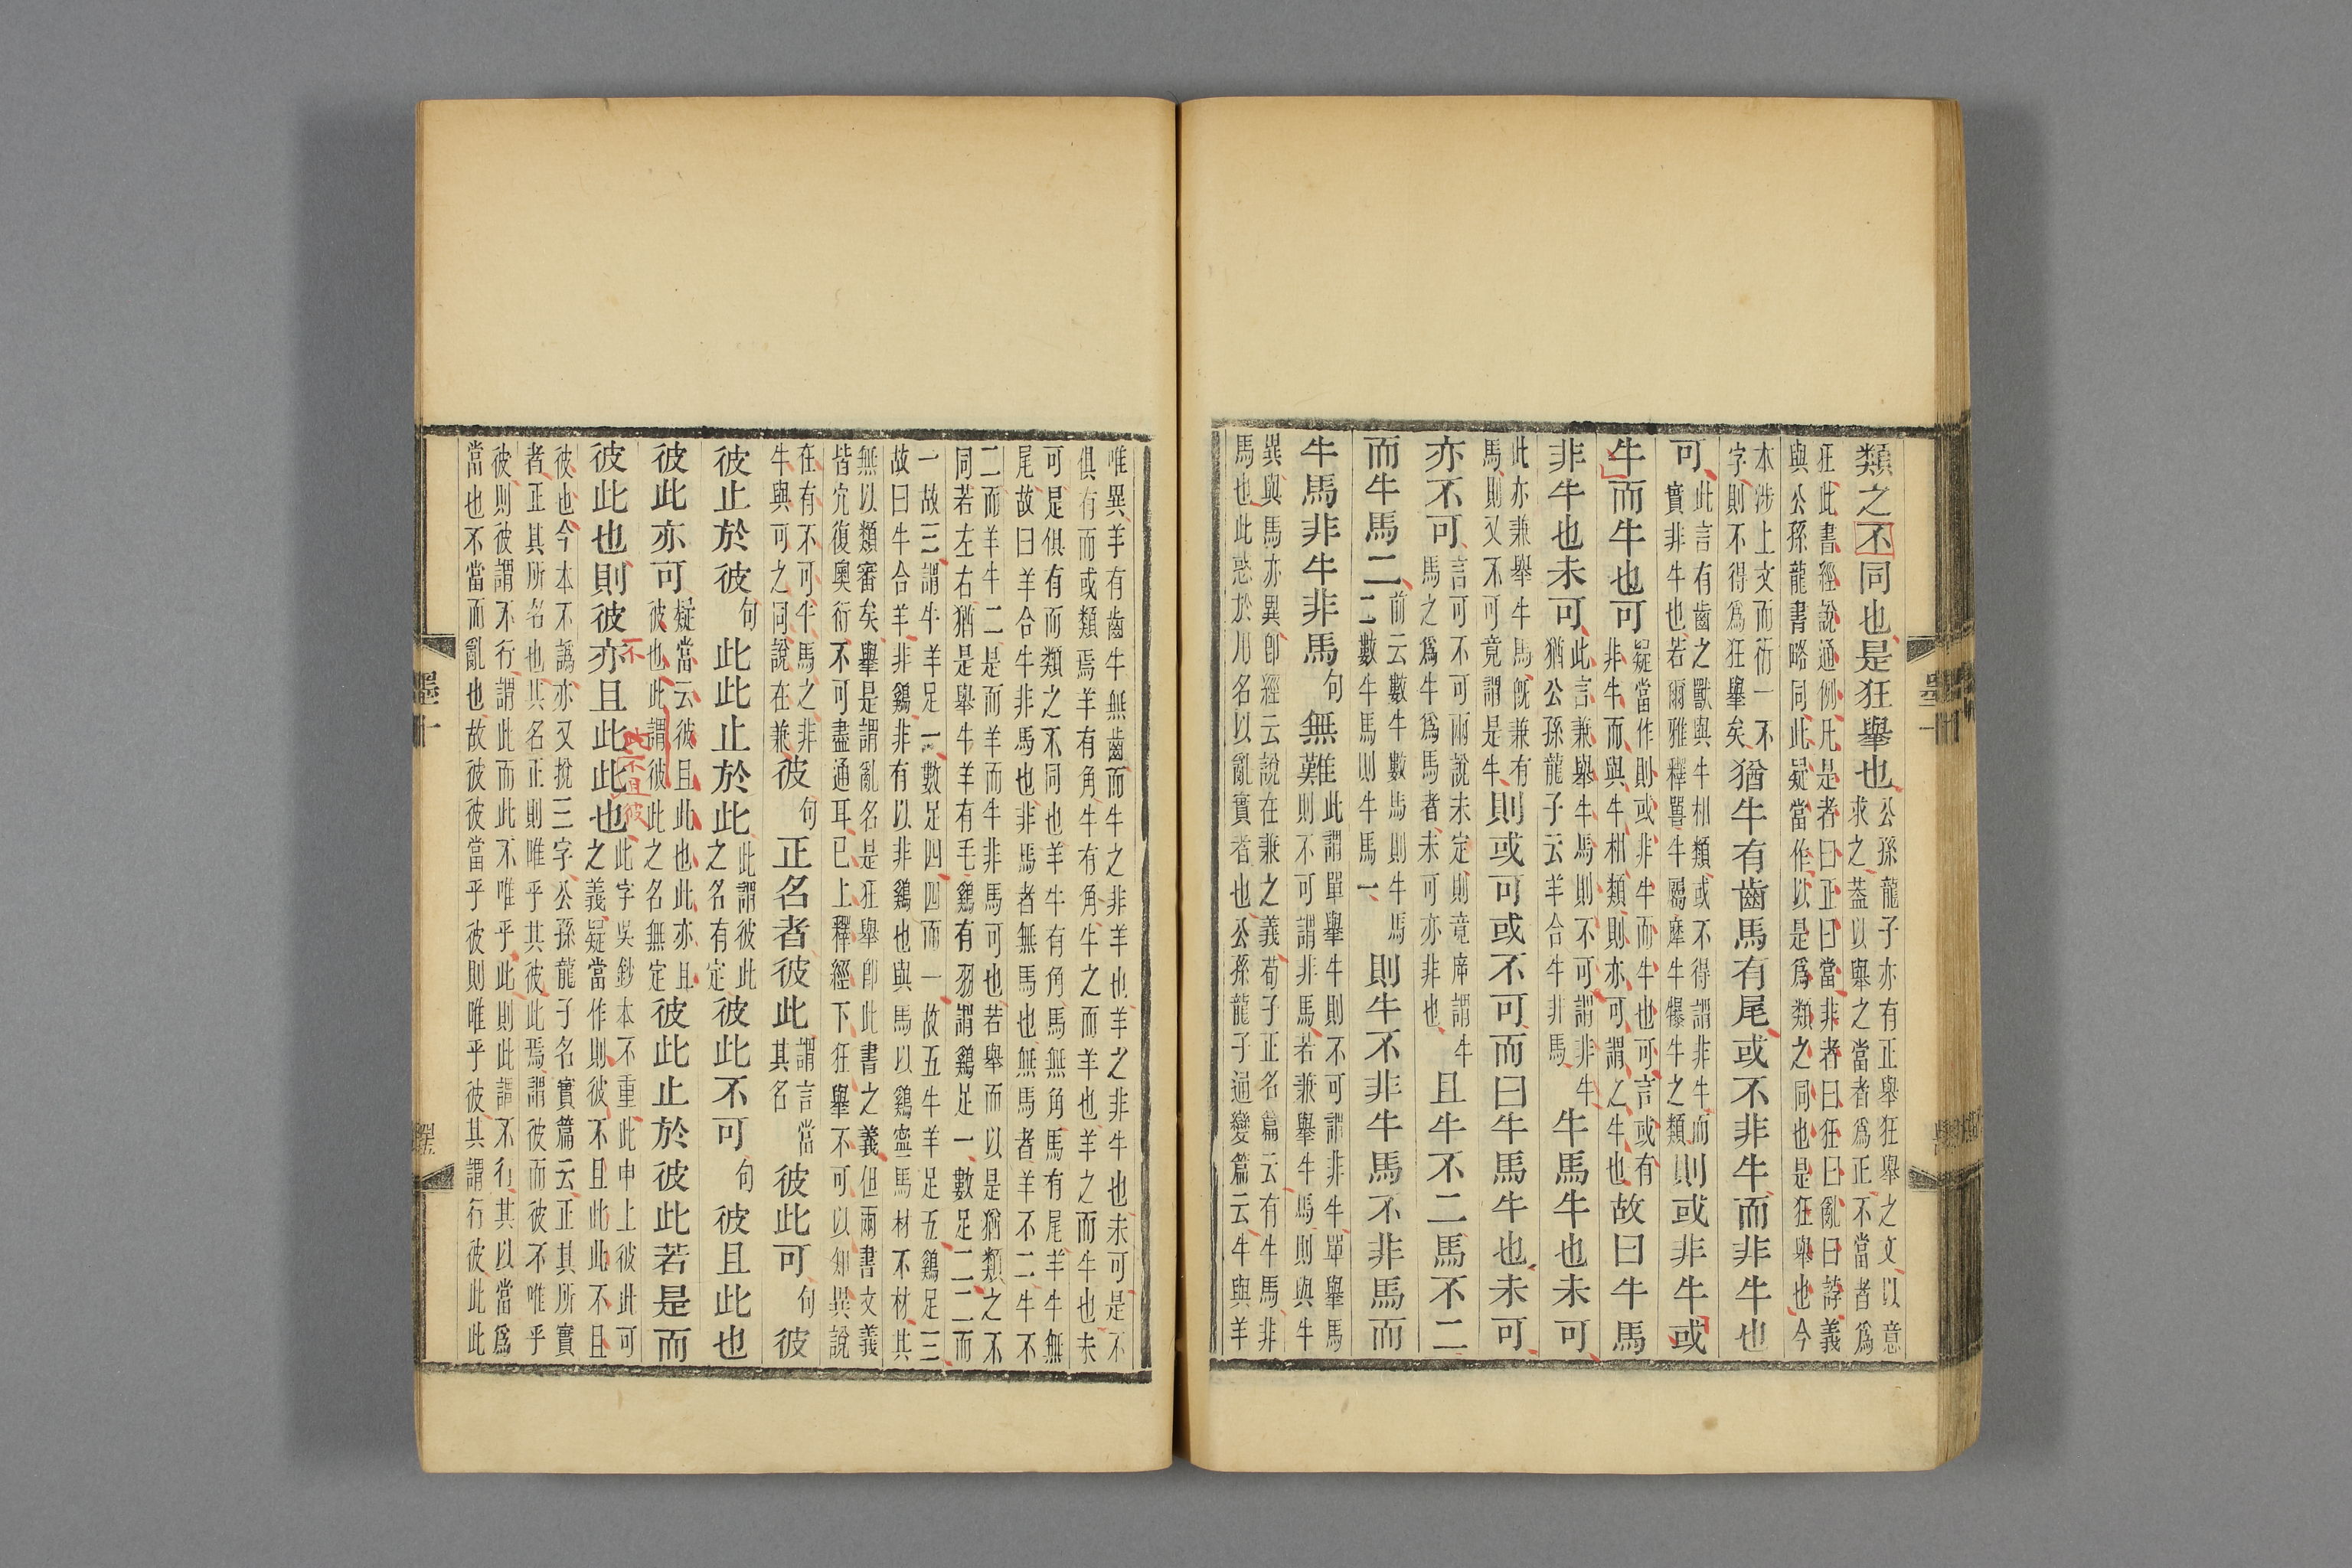 類之不同也是狂舉也公孫龍子亦有正舉狂舉之文以意
求之蓋以舉之當者爲正不當者爲
狂此書經說通例凡是者曰正曰當非者曰狂曰亂曰誖義
與公孫龍書略同此疑當作以是爲類之同也是狂舉也今
本涉上文而衍一不
字則不得爲狂舉矣猶牛有齒馬有尾或不非牛而非牛也
可此言有齒之獸與牛相類或不得謂非牛而
實非牛也若爾雅釋嘼牛屬犘牛犦牛之類則或非牛或
牛而牛也可疑當作則或非牛而牛也可言或有
非牛而與牛相類則亦可謂之牛也故曰牛馬
非牛也未可此言兼舉牛馬則不可謂非牛
猶公孫龍子云羊合牛非馬牛馬牛也未可
此亦兼舉牛馬旣兼有
馬則又不可竟謂是牛則或可或不可而曰牛馬牛也未可
亦不可言可不可兩說未定則竟席謂牛
馬之爲牛爲馬者未可亦非也且牛不二馬不二
而牛馬二前云數牛數馬則牛馬
二數牛馬則牛馬一則牛不非牛馬不非馬而
牛馬非牛非馬句無難此謂單舉牛則不可謂非牛單舉馬
則不可謂非馬若兼舉牛馬則與牛
異與馬亦異卽經云說在兼之義荀子正名篇云有牛馬非
馬也此惑於用名以亂實者也公孫龍子通變篇云牛與羊
唯異羊有齒牛無齒而牛之非羊也羊之非牛也未可是不
俱有而或類焉羊有角牛有角牛之而羊也羊之而牛也未
可是俱有而類之不同也羊牛有角馬無角馬有尾羊牛無
尾故曰羊合牛非馬也非馬者無馬也無馬者羊不二牛不
二而羊牛二是而羊而牛非馬可也若舉而以是猶類之不
同若左右猶是舉牛羊有毛鷄有羽謂鷄足一數足二二而
一故三謂牛羊足一數足四四而一故五牛羊足五鷄足三
故曰牛合羊非鷄非有以非鷄也與馬以鷄寧馬材不材其
無以類審矣舉是謂亂名是狂舉卽此書之義但兩書文義
皆宂復奧衍不可盡通耳已上釋經下狂舉不可以知異說
在有不可牛馬之非
牛與可之同說在兼彼句正名者彼此謂言當
其名彼此可句彼
彼止於彼句此此止於此此謂彼此
之名有定彼此不可句彼且此也
彼此亦可疑當云彼且此也此亦且
彼也此謂彼此之名無定彼此止於彼此若是而
彼此也則彼亦且此此也此字吳鈔本不重此申上彼此可
之義疑當作則彼不且此此不且
不
此不且彼
彼也今本不譌亦又捝三字公孫龍子名實篇云正其所實
者正其所名也其名正則唯乎其彼此焉謂彼而彼不唯乎
彼則彼謂不行謂此而此不唯乎此則此謂不行其以當爲
當也不當而亂也故彼彼當乎彼則唯乎彼其謂行彼此此
墨十